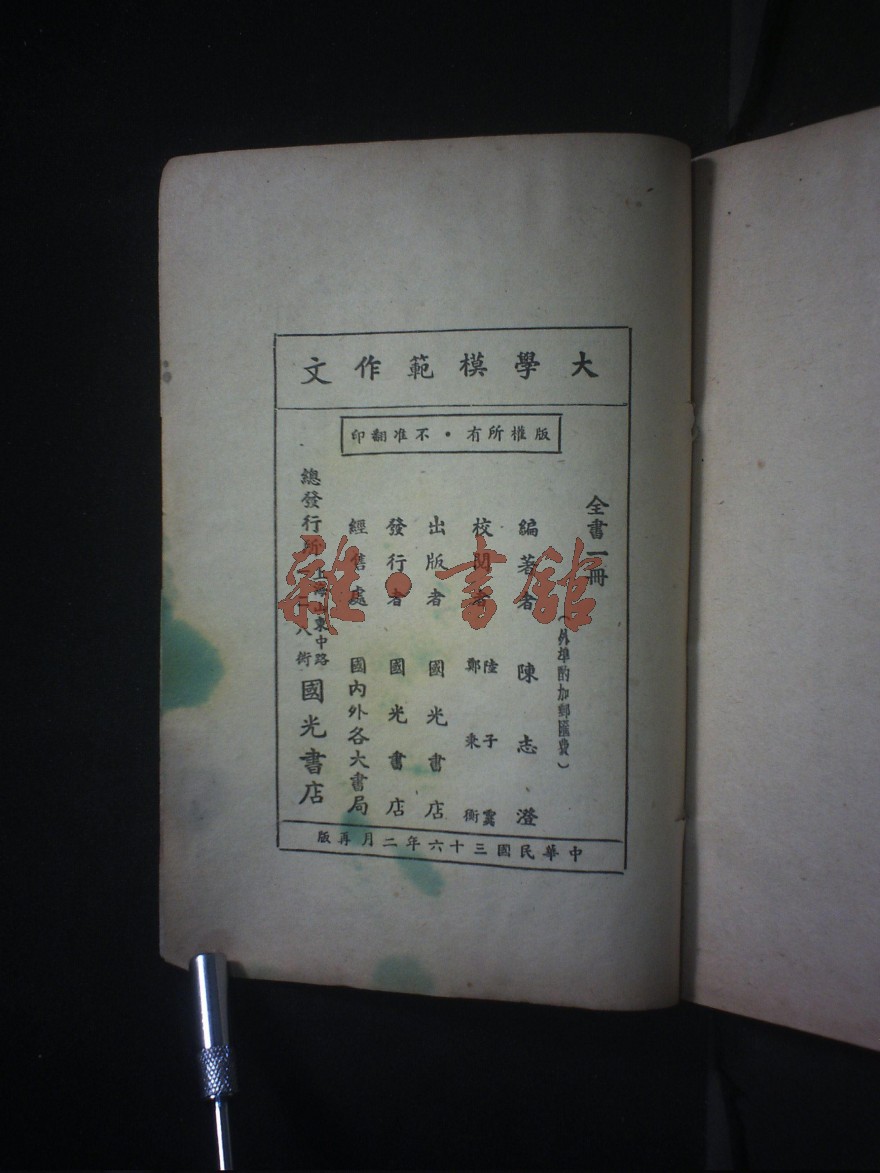 大學模範作文
版權所有・不准翻印
全書一冊
（外埠酌加郵匯費）
編著者 陳志澄
校閱者 陸子雲 鄭秉衡
出版者 國光書店
發行者 國光書店
經售處 國內外各大書局
總發行所 上海山東中路 二八衖 國光書店
中華民國三十六年二月再版
雜・書館